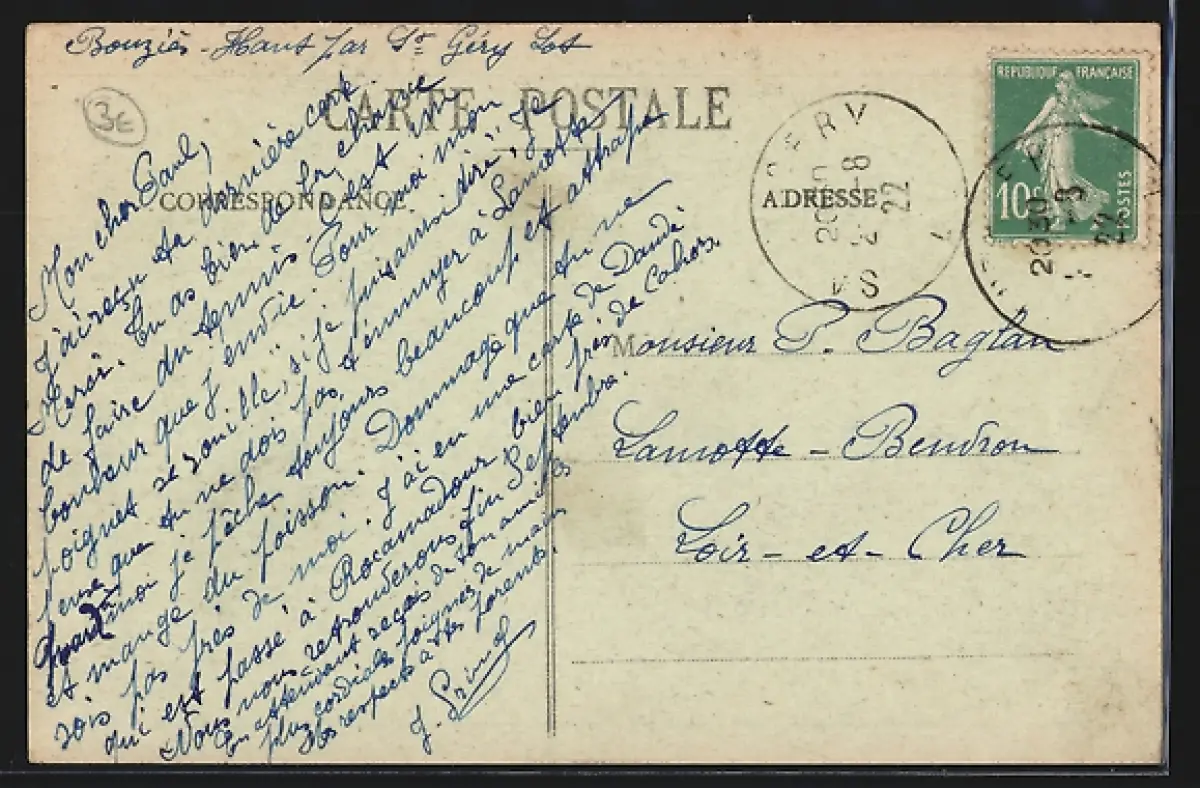 Bouziès-Haut par St Géry Lot
3E
CARTE POSTALE
CORRESPONDANCE
ADRESSE
REPUBLIQUE FRANÇAISE
10c
POSTES
GERY
20 30
2 - 8
22
20 30
22
Mon cher Paul,
J'ai reçu ta dernière carte.
Merci. Tu as bien de la chance
de faire du tennis. C'est un
bonheur que j'envie. Pour moi mon
poignet se rouille, si je puis ainsi dire, Je
pense que tu ne dois pas t'ennuyer à Lamotte
Quant à moi je pêche toujours beaucoup et attrape
et mange du poisson. Dommage que tu ne
sois pas près de moi. J'ai eu une carte de
qui est passé à Rocamadour, bien près de Cahors.
Nous nous retrouverons fin Septembre.
En attendant reçois de ton ami
plus cordiales poignées de mains
Mes respects à tes parents.
Monsieur P. Baglan
Lamotte-Beudron
Loir-et-Cher